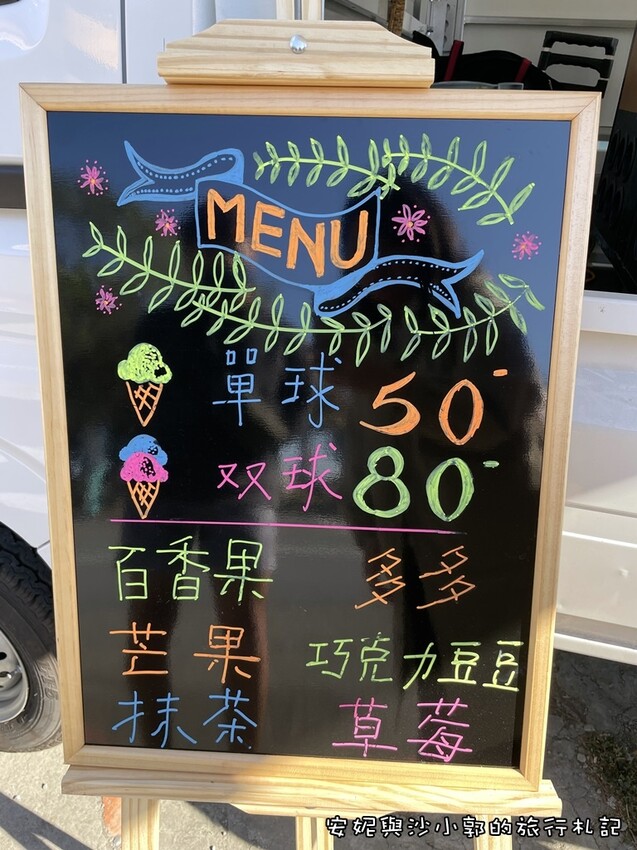 MENU
單球 50-
双球 80-
百香果 多多
芒果 巧克力豆豆
抹茶 草莓
安妮與沙小郭的旅行札記